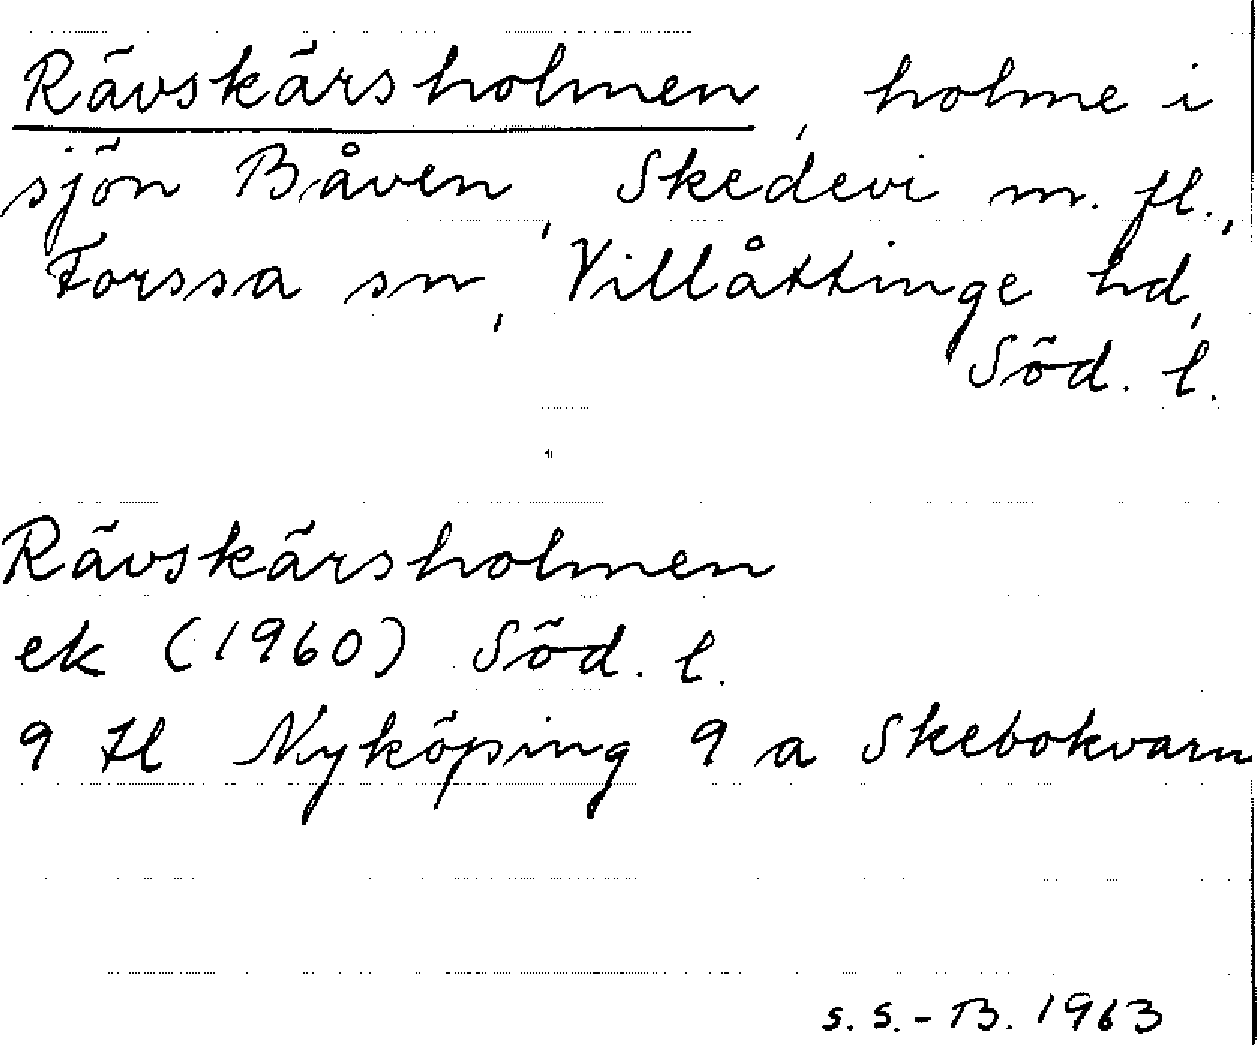 Rävskärsholmen, holme i
sjön Båven, Skedevi m. fl.,
Forssa sn, Villåttinge hd,
Söd. l.
Rävskärsholmen
ek (1960) Söd. l.
9 H Nyköping 9 a Skebokvarn
S. S.-B. 1963